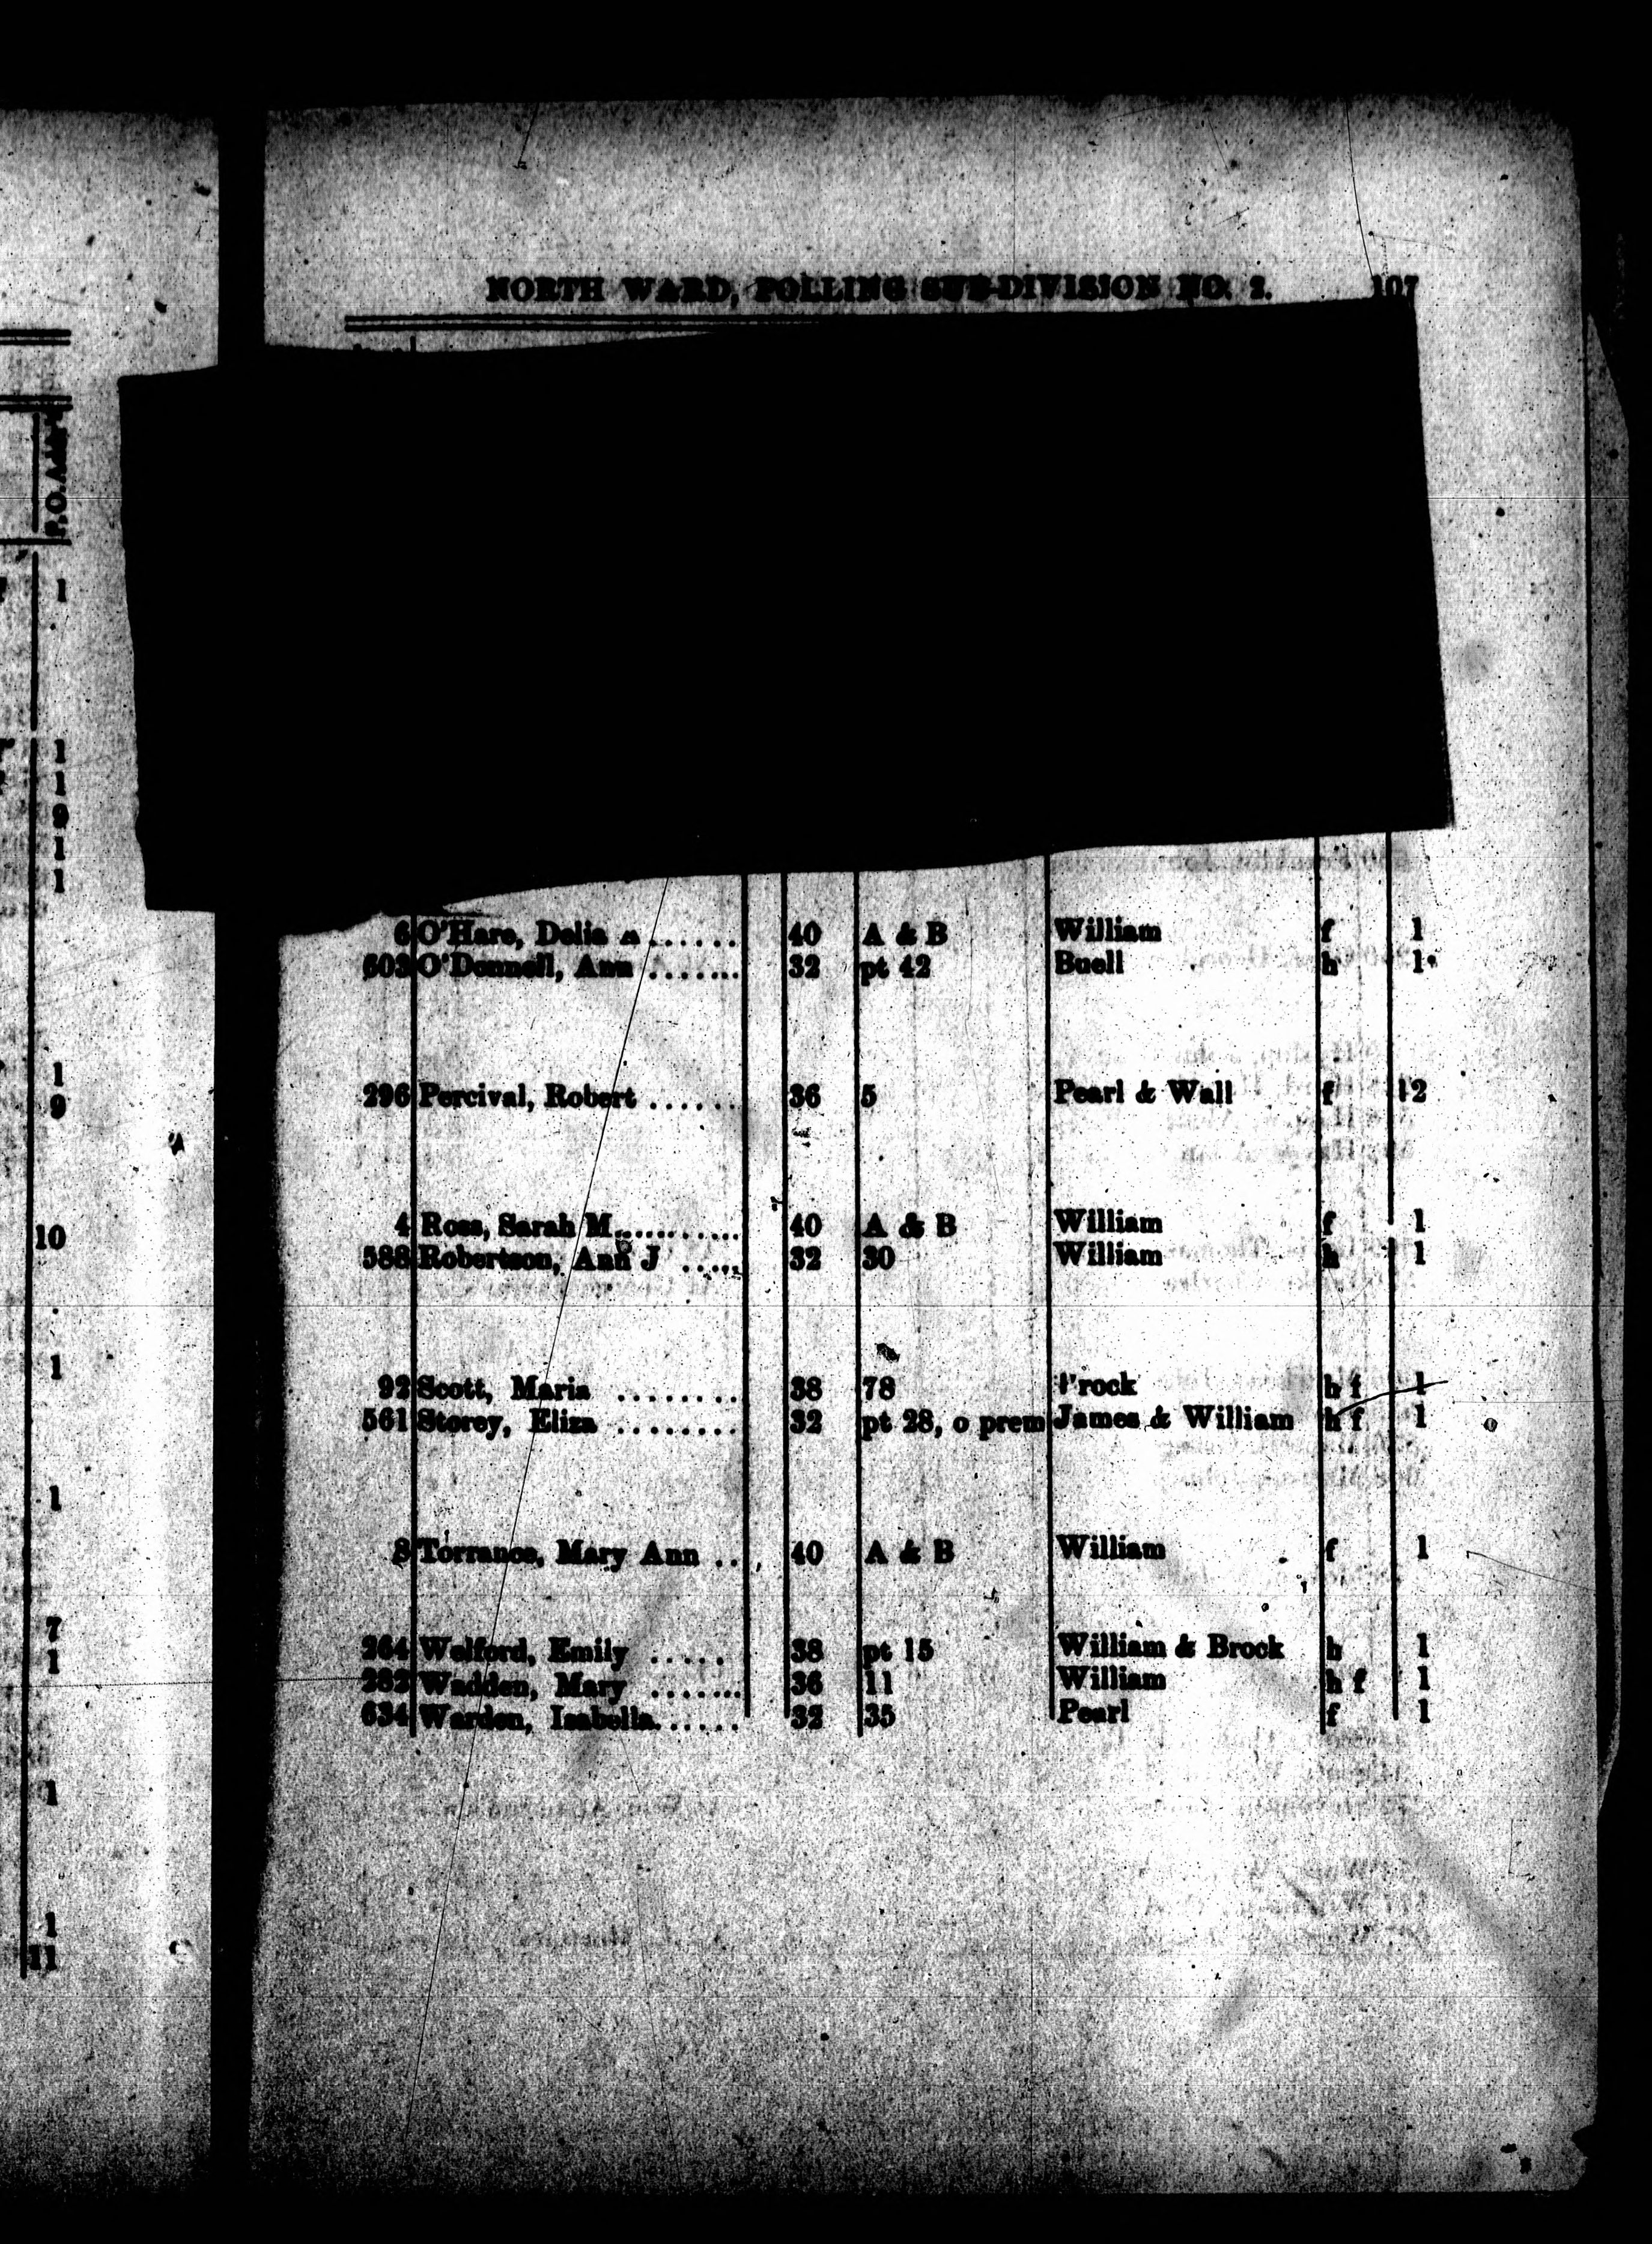 NORTH WARD, POLLING SUB-DIVISION NO. 2. 107
P.O. Add.
1
1
1
9
1
1
1
9
10
1
1
7
1
1
1
11
6 O'Hare, Delia A ...... 40 A & B William f 1
603 O'Donnell, Ann ....... 32 pt 42 Buell h 1
296 Percival, Robert ...... 36 5 Pearl & Wall f 12
4 Ross, Sarah M........... 40 A & B William f 1
588 Robertson, Ann J ..... 32 30 William h 1
92 Scott, Maria ........ 38 78 rock h f 1
561 Storey, Eliza ........ 32 pt 28, o prem James & William h f 1
8 Torrance, Mary Ann .. 40 A & B William f 1
264 Welford, Emily ..... 38 pt 15 William & Brock h 1
282 Wadden, Mary ....... 36 11 William h f 1
634 Warden, Isabella...... 32 35 Pearl f 1